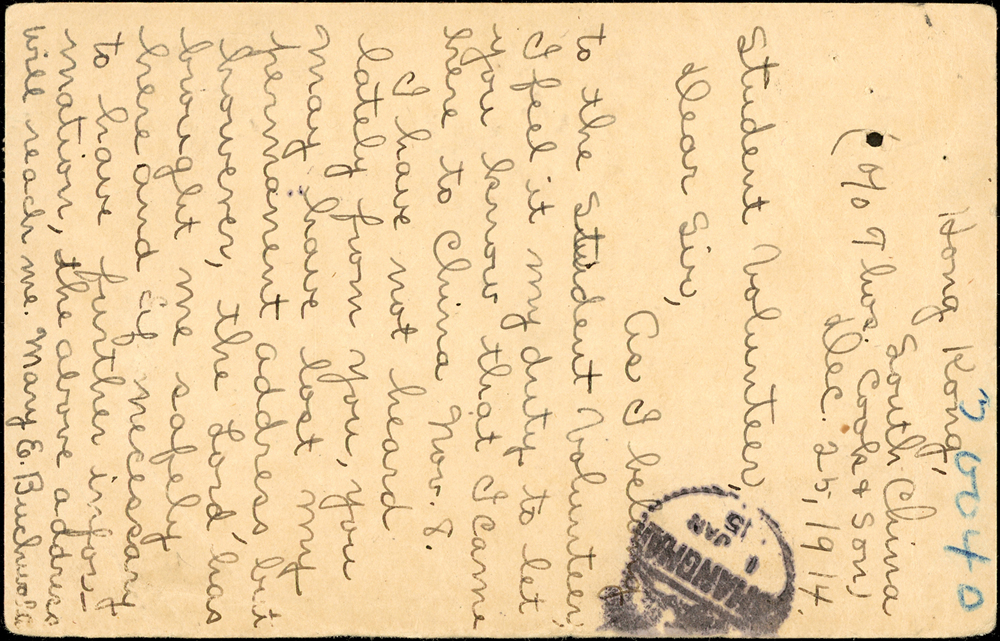 Hong Kong,
South China
(c/o Thos. Cook & Son)
Dec. 25, 1914.
Student Volunteer,
Dear Sir,
As I belong
to the Student Volunteer,
I feel it my duty to let
you know that I came
here to China Nov. 8.
I have not heard
lately from you, you
may have lost my
permanent address but
however, the Lord has
brought me safely
here and if necessary
to have further infor-
mation, the above address
will reach me. Mary E.
1 JAN
15